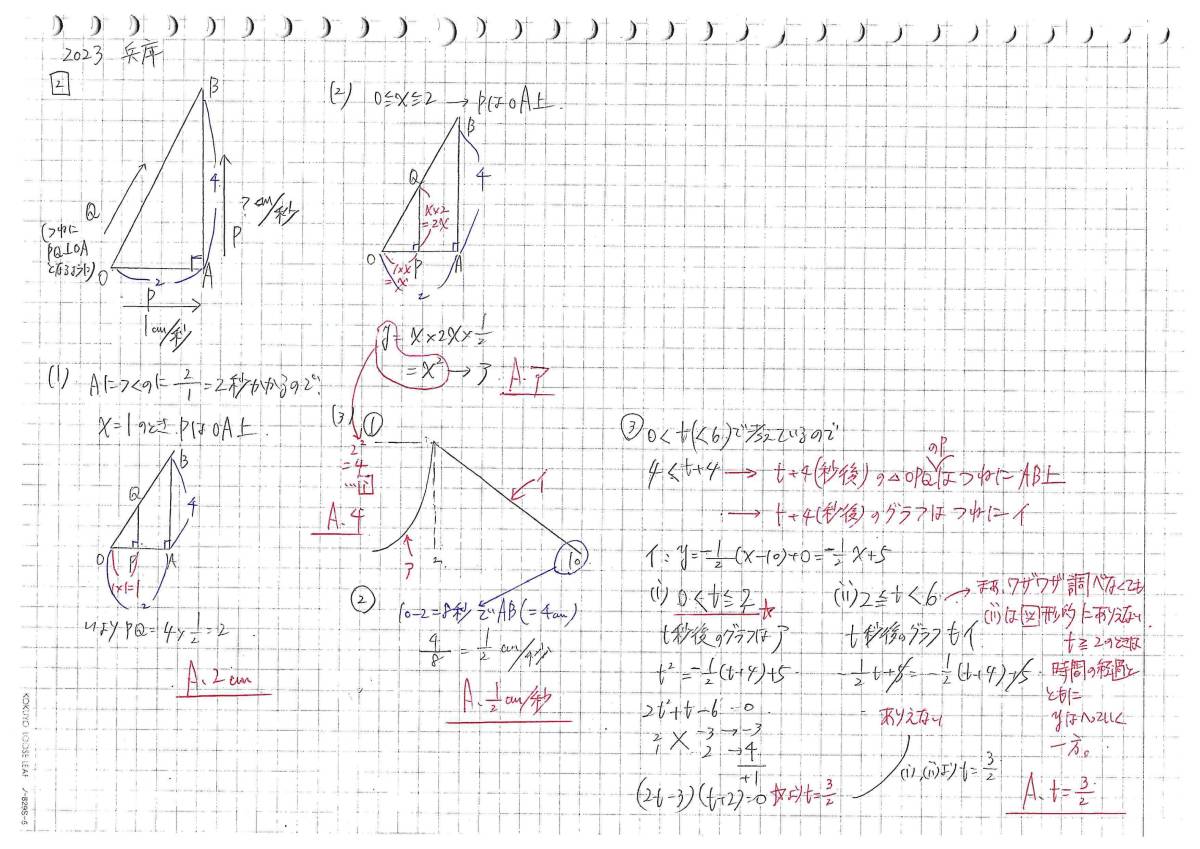 2023 兵庫
2
B
4
? cm/秒
Q
(つねに
PQ⊥OA
となるように)
P
O
2
A
P
1cm/秒
(1) Aにつくのに 2/1 = 2秒かかるので
x=1のとき PはOA上
B
Q
4
O
P
A
1×1=1
2
PQ=4×1/2=2
A. 2cm
(2) 0≦x≦2 → PはOA上.
B
Q
4
x×2
=2x
O
P
A
1×x
=x
2
y = x×2x×1/2
= x² → ア
A. ア
(3) ①
2²
=4
…i
A. 4
イ
ア
2
10
② 10-2=8秒でAB(=4cm)
4/8 = 1/2 cm/秒
A. 1/2 cm/秒
③ 0<t(<6)で考えているので
のP
4<t+4 → t+4(秒後)の△OPQはつねにAB上
→ t+4(秒後)のグラフはつねにイ
イ: y=-1/2(x-10)+0=-1/2x+5
(i) 0<t≦2 ☆
t秒後のグラフはア
t²=-1/2(t+4)+5
2t²+t-6=0
2 -3 → -3
1 2 → 4
+1
(2t-3)(t+2)=0 ☆より t=3/2
(ii) 2≦t<6 → まぁ、ワザワザ調べなくても
(ii)は図形的にありえない
t≧2のときは
時間の経過と
ともに
yはへっていく
一方。
t秒後のグラフもイ
-1/2t+5=-1/2(t+4)+5
ありえない
(i),(ii)より t=3/2
A. t=3/2
KOKUYO LOOSE LEAF